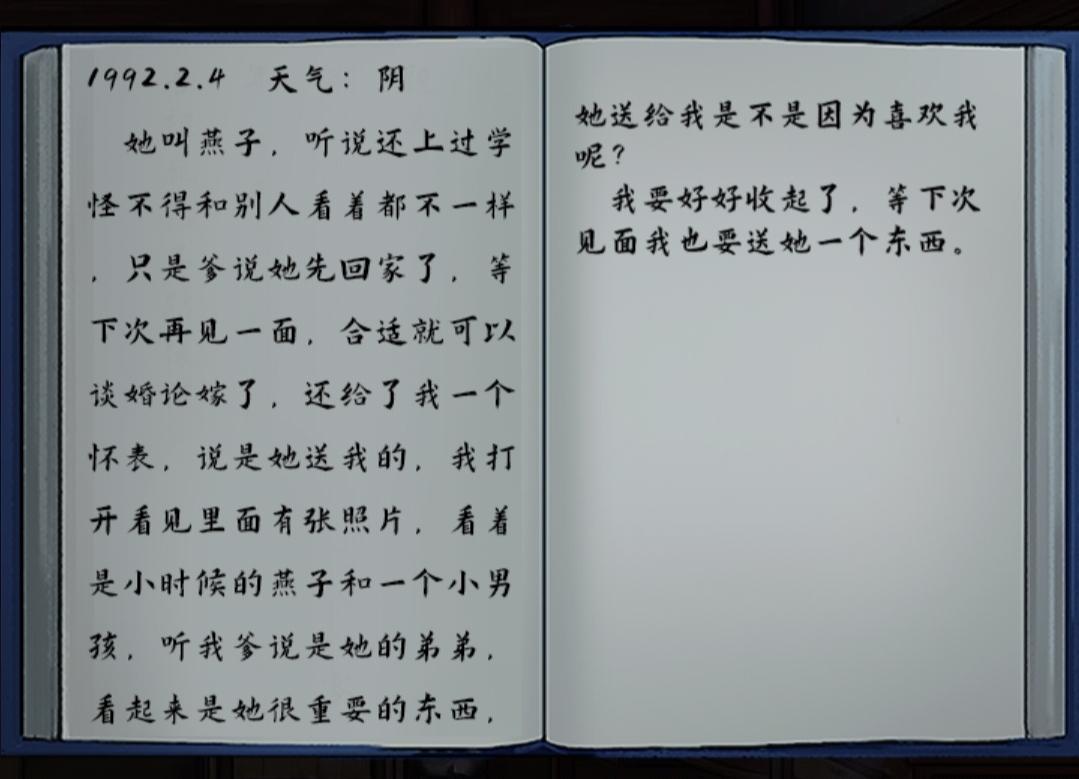 1992.2.4 天气：阴
她叫燕子，听说还上过学
怪不得和别人看着都不一样
，只是爹说她先回家了，等
下次再见一面，合适就可以
谈婚论嫁了，还给了我一个
怀表，说是她送我的，我打
开看见里面有张照片，看着
是小时候的燕子和一个小男
孩，听我爹说是她的弟弟，
看起来是她很重要的东西，
她送给我是不是因为喜欢我
呢？
我要好好收起了，等下次
见面我也要送她一个东西。